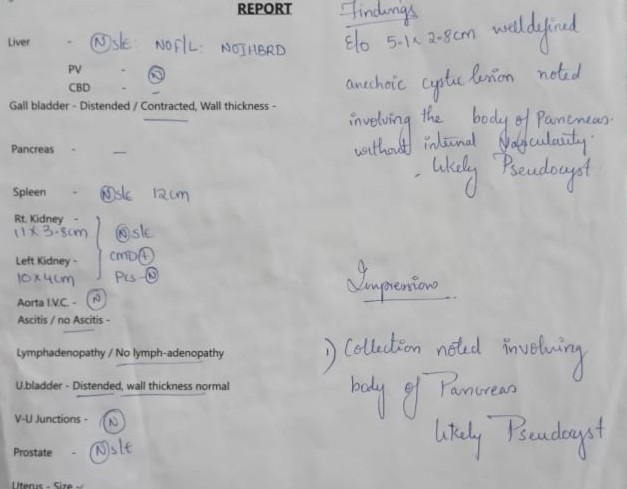 REPORT
Liver - (N) s/E: NO F/L: NO IHBRD
PV -
CBD - (N)
Gall bladder - Distended / Contracted, Wall thickness -
Pancreas - —
Spleen - (N) s/E 12cm
Rt. Kidney -
11 x 3.8cm (N) s/E
Left Kidney - CMD (+)
10 x 4cm PCS - (N)
Aorta I.V.C. - (N)
Ascitis / no Ascitis -
Lymphadenopathy / No lymph-adenopathy
U.bladder - Distended, wall thickness normal
V-U Junctions - (N)
Prostate - (N) s/E
Uterus - Size -
Findings
E/o 5.1 x 2.8cm welldefined
anechoic cystic lesion noted
involving the body of Pancreas.
without internal vascularity.
- likely Pseudocyst
Impression
1) Collection noted involving
body of Pancreas
likely Pseudocyst